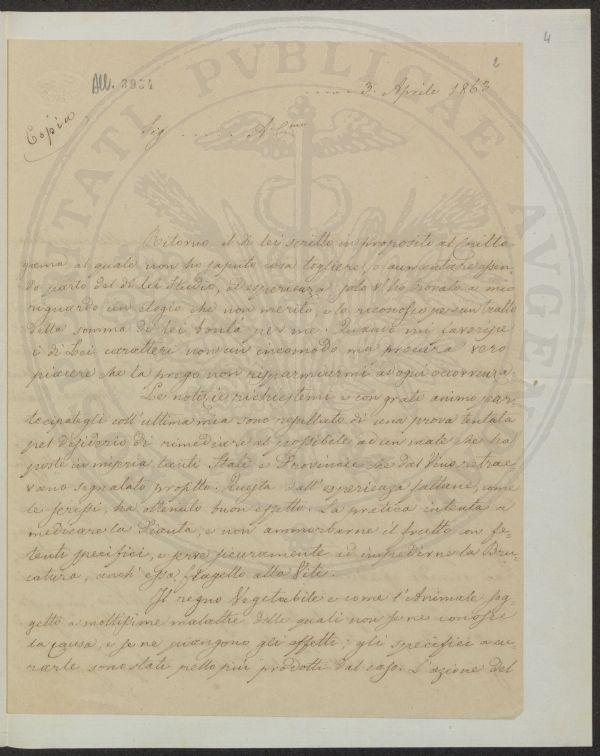 4
2
All. 3934
..... 3. Aprile 1863
Copia
Sig ...... A.C.mo
Ritorno il di lei scritto in proposito al
gama al quale non ho saputo cosa togliere, o aumentare essen-
do parto del di lei Studio, ed esperienza solo v'ho trovato a mio
riguardo un elogio che non merito, e lo riconosco per un tratto
della somma di lei bontà per me. Quando mi
i di Lei caratteri non un incomodo ma procura vero
piacere che la prego non risparmiarmi ad ogni occorrenza.
Le notizie richiestemi e con grato animo par-
tecipategli coll'ultima mia sono resultato di una prova tentata
pel desiderio di rimediare al possibile ad un male che ha
posto in miseria tanti Stati e Provincie che dal Vino retrae
vano segnalato profitto. Questa dall'esperienza fattane, come
le scrissi, ha ottenuto buon effetto. La pratica intenta a
medicare la Pianta, e non ammorbarne il frutto con fe-
tenti specifici, e serve sicuramente ad impedirne la Bru-
catura, anch'essa flagello alla Vite.
Il regno Vegetabile è come l'Animale sog-
getto a moltissime malattie delle quali non se ne conosce
la causa, e se ne piangono gli effetti; gli specifici a cu-
rarle sono stati pello più prodotti dal caso. L'azione del
PUBLICAE
AUGEN